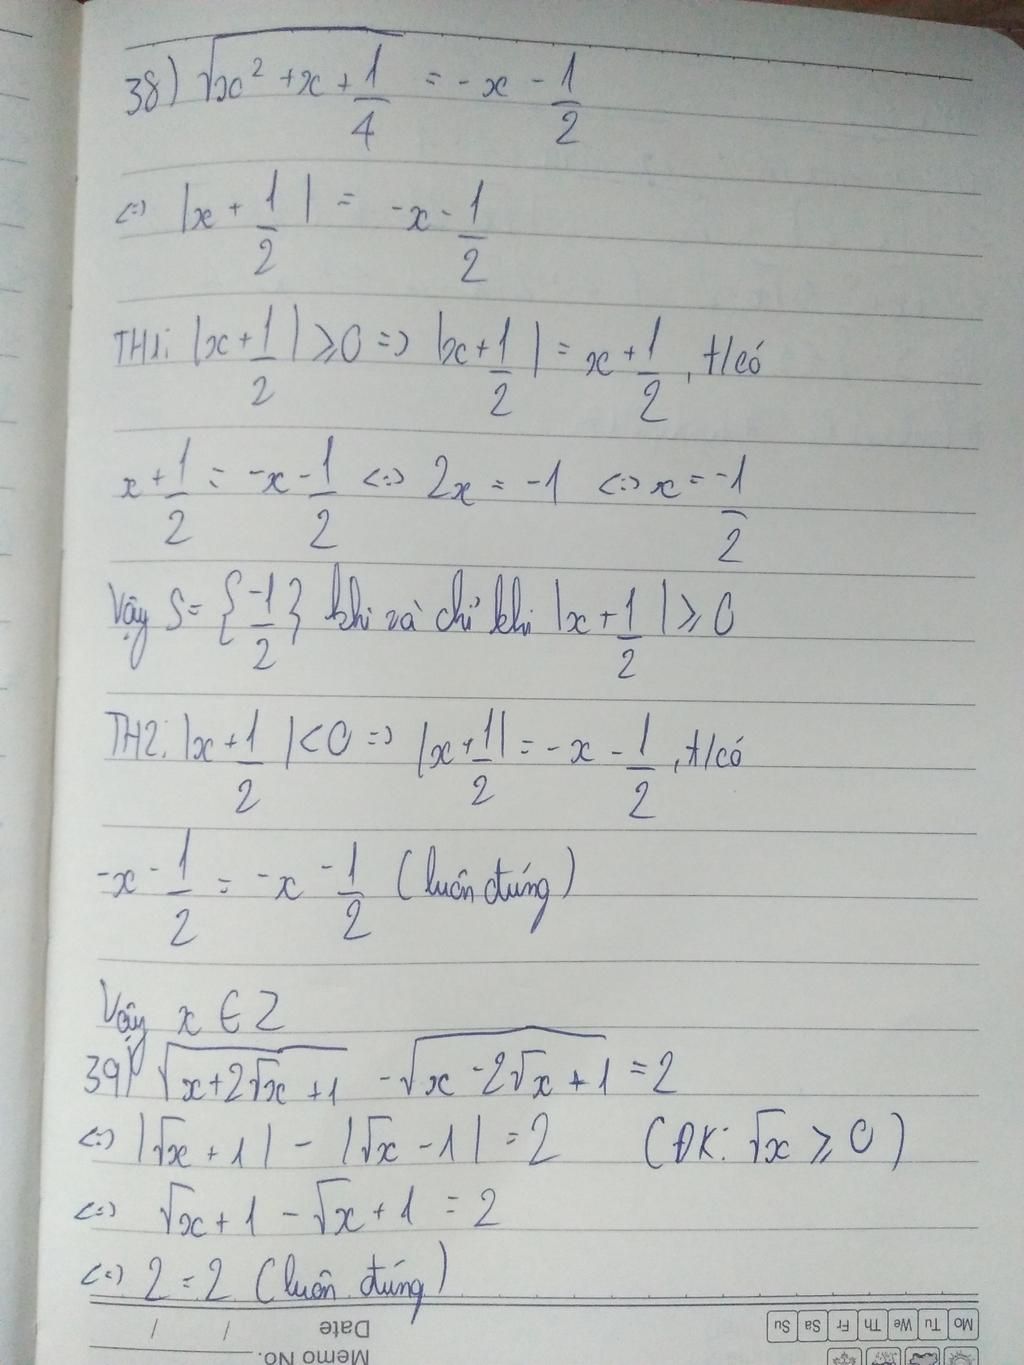 38) √(x² + x + 1/4) = -x - 1/2
<=> |x + 1/2| = -x - 1/2
TH1: |x + 1/2| ≥ 0 => |x + 1/2| = x + 1/2, t/có
x + 1/2 = -x - 1/2 <=> 2x = -1 <=> x = -1/2
Vậy S = {-1/2} khi và chỉ khi |x + 1/2| ≥ 0
TH2: |x + 1/2| < 0 => |x + 1/2| = -x - 1/2, t/có
-x - 1/2 = -x - 1/2 (luôn đúng)
Vậy x ∈ Z
39) √(x + 2√x + 1) - √(x - 2√x + 1) = 2
<=> |√x + 1| - |√x - 1| = 2 (ĐK: √x ≥ 0)
<=> √x + 1 - √x + 1 = 2
<=> 2 = 2 (luôn đúng)
Mo Tu We Th Fr Sa Su
Date / /
Memo No.